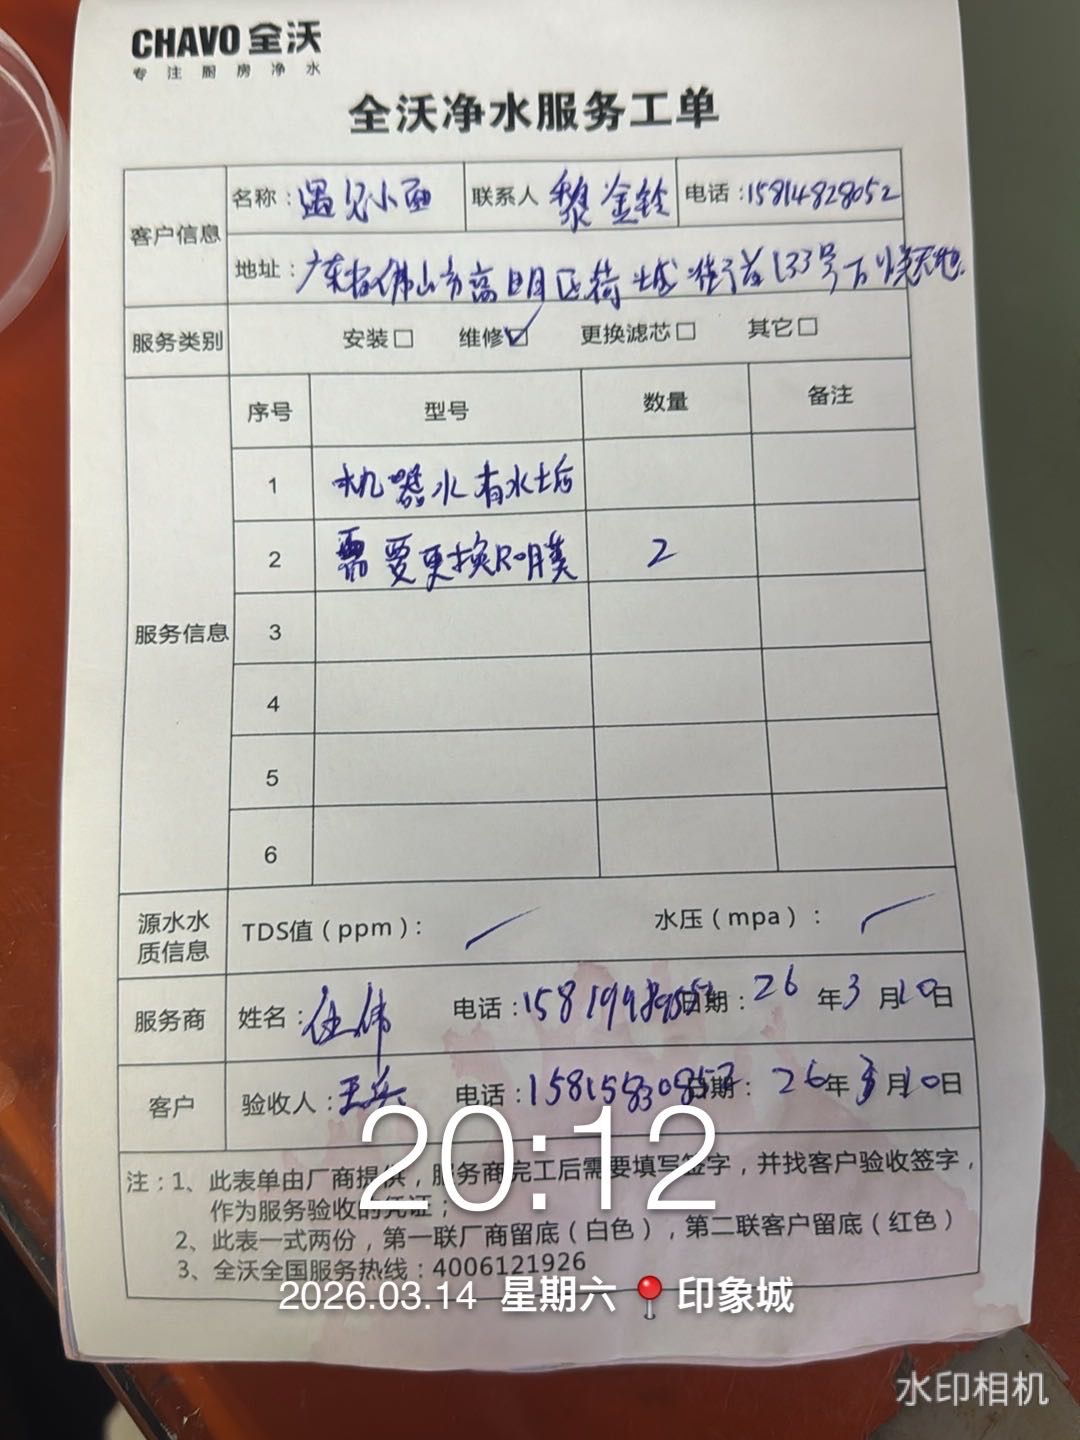 CHAVO 全沃
专注厨房净水
全沃净水服务工单
客户信息 名称：遇见小面 联系人 黎金铃 电话：15814828052
地址：广东省佛山市高明区荷城街道133号万悦天地
服务类别 安装□ 维修☑ 更换滤芯□ 其它□
服务信息 序号 型号 数量 备注
1 机器水有水垢
2 需要更换RO膜 2
3
4
5
6
源水水质信息 TDS值（ppm）： 水压（mpa）：
服务商 姓名： 电话： 日期：26年3月10日
客户 验收人： 电话： 日期：26年3月10日
注：1、此表单由厂商提供，服务商完工后需要填写签字，并找客户验收签字，
作为服务验收的凭证；
2、此表一式两份，第一联厂商留底（白色），第二联客户留底（红色）
3、全沃全国服务热线：4006121926
20:12
2026.03.14 星期六 印象城
水印相机